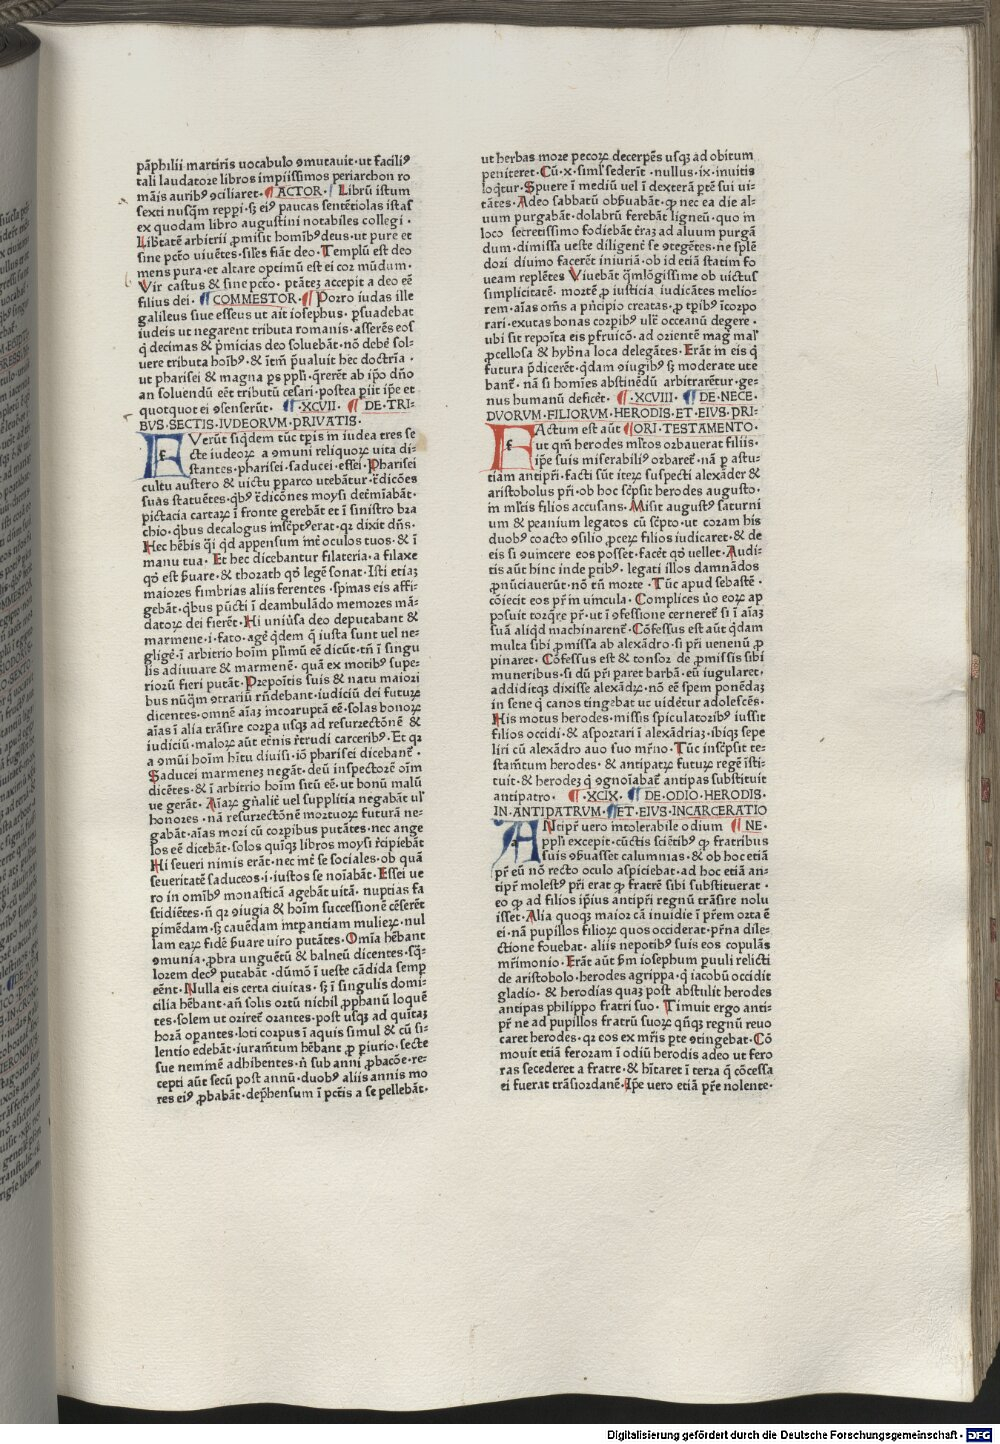 pāphilii martiris uocabulo ꝯmutauit·ut faciliꝰ
tali laudatore libros impiissimos periarchon ro
mais auribꝰ ꝯciliaret·¶ACTOR·¶Librū istum
sexti nusq̄m reppi·sꝫ eiꝰ paucas sentētiolas istas
ex quodam libro augustini notabiles collegi·
Libtatē arbitrii ꝓmisit homibꝰ deus·ut pure et
sine pctō uiuētes·siles fiāt deo·Templū est deo
mens pura·et altare optimū est ei cor mūdum·
Vir castus & sine pctō·ptātez accepit a deo eē
filius dei·¶COMMESTOR·¶Porro iudas ille
galileus siue esseus ut ait iosephus·ꝑsuadebat
iudeis ut negarent tributa romanis·asserēs eos
q̄ decimas & pmicias deo soluebāt·nō debē sol-
uere tributa hoībꝰ·& itm̄ pualuit hec doctrīa·
ut pharisei & magna ps ppli·q̄rerēt ab ip̄o dn̄o
an soluendū eēt tributū cesari·postea piit ip̄e et
quotquot ei ꝯsenserūt·¶·XCVII·¶DE·TRI-
BVS·SECTIS·IVDEORVM·PRIVATIS·
FVerūt siq̄dem tūc tp̄is in iudea tres se
cte iudeoꝝ a ꝯmuni reliquoꝝ uita di-
stantes·pharisei·saducei·essei·Pharisei
cultu austero & uictu pparco utebātur·tdicōes
suas statuētes·qbꝰ tdicōnes moysi detmīabāt·
pictacia cartaꝝ ī fronte gerebāt et ī sinistro bra
chio·qbꝰ decalogus inscptꝰ erat·qꝛ dixit dn̄s·
Hec hēbis q̄i qd appensum inter oculos tuos·& ī
manu tua·Et hec dicebantur filateria·a filaxe
qd̄ est suare·& thorath qd̄ legē sonat·Isti etiaꝫ
maiores fimbrias aliis ferentes·spinas eis affi-
gebāt·qbus pūcti ī deambulādo memores mā-
datoꝝ dei fierēt·Hi uniūsa deo deputabant &
marmene·i·fato·agē qdem q̄ iusta sunt uel ne-
gligē·ī arbitrio hoīm plimū eē dicūt·tn̄ ī singu
lis adiuuare & marmenē·quā ex motibꝰ supe-
riorū fieri putāt·Prepoītis suis & natu maiori
bus nūq̄m ꝯtrariū rn̄debant·iudiciū dei futurꝫ
dicentes·omnē aīaꝫ incorruptā eē·solas bonoꝝ
aīas ī alia trāsire corpa usqꝫ ad resurrectōnē &
iudiciū·maloꝝ aūt etnis rtrudi carceribꝰ·Et qꝛ
a ꝯmūi hoīm hītu diuisi·iō pharisei dicebanē·
Saducei marmenez negāt·deū inspectorē oīm
dicētes·& ī arbitrio hoīm sitū eē·ut bonū malū
ue gerāt·Aīaꝝ gnalit̄ uel supplitia negabāt ul
honores·nā resurrectōnē mortuoꝝ futurā ne-
gabāt·aīas mori cū corpibus putātes·nec ange
los eē dicebāt·solos quīqꝫ libros moysi rcipiebāt
Hi seueri nimis erāt·nec int̄ se sociales·ob quā
seueritatē saduceos·i·iustos se noīabāt·Essei ue
ro in omībꝰ monasticā agebāt uitā·nuptias fa
stidiētes·n̄ qꝛ ꝯiugia & hoīm successionē cēserēt
pimēdam·sꝫ cauēdam intpantiam mulieꝝ·nul
lam earꝫ fidē suare uiro putātes·Omīa hēbant
ꝯmunia·ꝓbra unguētū & balneū dicentes·sq̄-
lorem decꝰ putabāt·dūmō ī ueste cādida semꝑ
eēnt·Nulla eis certa ciuitas·sꝫ ī singulis domi-
cilia hēbant·an̄ solis ortū nichil ꝓphanū loquē
tes·solem ut oriret orantes·post usqꝫ ad quītaꝫ
horā opantes·loti corpus ī aquis simul & cū si-
lentio edebāt·iuramtum hēbant ꝓ piurio·secte
sue neminē adhibentes·n̄ sub anni ꝓbacōe·re-
cepti aūt secū post annū·duobꝰ aliis annis mo
res eiꝰ ꝓbabāt·dephensum ī pctīs a se pellebāt·
ut herbas more pecoꝝ decerpēs usqꝫ ad obitum
peniteret·Cū·x·simꝉ sederīt·nullus·ix·inuitis
loqtur·Spuere ī mediū uel ī dexterā ptē sui ui-
tātes·Adeo sabbatū obsuabāt·ꝙ nec ea die al-
uum purgabāt·dolabrū ferebāt ligneū·quo in
loco secretissimo fodiebāt tras ad aluum purgā
dum·dimissa ueste diligent se ꝯtegētes·ne splē
dori diuino facerēt iniuriā·ob id etiā statim fo
ueam replētes Viuebāt q̄mlōgissime ob uictus
simplicitatē·mortē ꝓ iusticia iudicātes melio-
rem·aīas oms̄ a pncipio creatas·ꝓ tpibꝰ īcorpo
rari·exutas bonas corpibꝰ ultra occeanū degere·
ubi sit repoita eis pfruicō·ad orientē mag mal
ꝓcellosa & hybna loca delegātes·Erāt in eis q̄
futura pdicerēt·qdam ꝯiugibꝰ sꝫ moderate ute
banē·nā si homīes abstinēdū arbitrarētur·ge-
nus humanū deficēt·¶·XCVIII·¶DE·NECE·
DVORVM·FILIORVM·HERODIS·ET·EIVS·PRI-
FActum est aūt ¶ORI·TESTAMENTO·
ut qm̄ herodes mltos orbauerat filiis·
ip̄e suis miserabiliꝰ orbareē·nā p astu-
tiam antipri·facti sūt iteꝝ suspecti alexāder &
aristobolus pri·ob hoc scpsit herodes augusto·
in mltis filios accusans·Misit augustꝰ saturni
um & peanium legatos cū scpto·ut coram his
duobꝰ coacto ꝯsilio ꝓceꝝ filios iudicaret·& de
eis si ꝯuincere eos posset·facēt qd̄ uellet·Audi-
tis aūt hinc inde ptibꝰ·legati illos damnādos
ꝓnūciauerūt·nō tn̄ morte·Tūc apud sebastē·
cōiecit eos pr̄ in uincula·Complices uō eoꝝ ap
posuit torqre pr̄·ut ī ꝯfessione cernereē si ī aīaꝫ
suā aliqd machinarenē·Cōfessus est aūt qdam
multa sibi ꝓmissa ab alexādro·si pri uenenū ꝓ
pinaret·Cōfessus est & tonsor de ꝓmissis sibi
muneribus·si dū pri paret barbā·eū iugularet·
addiditqꝫ dixisse alexādꝝ·nō eē spem ponēdaꝫ
in sene q̄ canos tingebat ut uidētur adolescēs·
His motus herodes·missis spiculatoribꝰ iussit
filios occidi·& asportari ī alexādriaꝫ·ibiqꝫ sepe
liri cū alexādro auo suo mr̄no·Tūc inscpsit te-
stamtum herodes·& antipatꝝ futurꝫ regē īsti-
tuit·& herodeꝫ q̄ ꝯgnoīabaē antipas substituit
antipatro·¶·XCIX·¶DE·ODIO·HERODIS·
IN·ANTIPATRVM·¶ET·EIVS·INCARCERATIO
ANtipr̄ uero intolerabile odium ¶NE·
ppli excepit·cūctis sciētibꝰ ꝙ fratribus
suis ꝯsuasset calumnias·& ob hoc etiā
pr̄ eū nō recto oculo aspiciebat·ad hoc etiā an-
tipr̄ molestꝰ pri erat ꝙ fratrē sibi substituerat·
eo ꝙ ad filios ip̄ius antipri regnū trāsire nolu
isset·Alia quoqꝫ maior cā inuidie ī prem orta ē
ei·nā pupillos filioꝝ quos occiderat·prna dile-
ctione fouebat·aliis nepotibꝰ suis eos copulās
mr̄imonio·Erāt aūt sm iosephum puuli relicti
de aristobolo·herodes agrippa·q̄ iacobū occidit
gladio·& herodias quaꝫ post abstulit herodes
antipas philippo fratri suo·Timuit ergo anti-
pr̄ ne ad pupillos fratrū suoꝝ qnqꝫ regnū reuo
caret herodes·qꝛ eos ex mr̄is pte ꝯtingebat·Cō
mouit etiā feroram ī odiū herodis adeo ut fero
ras secederet a fratre·& hītaret ī terra q̄ cōcessa
ei fuerat trāsiordanē·Ip̄e uero etiā pre nolente·
Digitalisierung gefördert durch die Deutsche Forschungsgemeinschaft - DFG